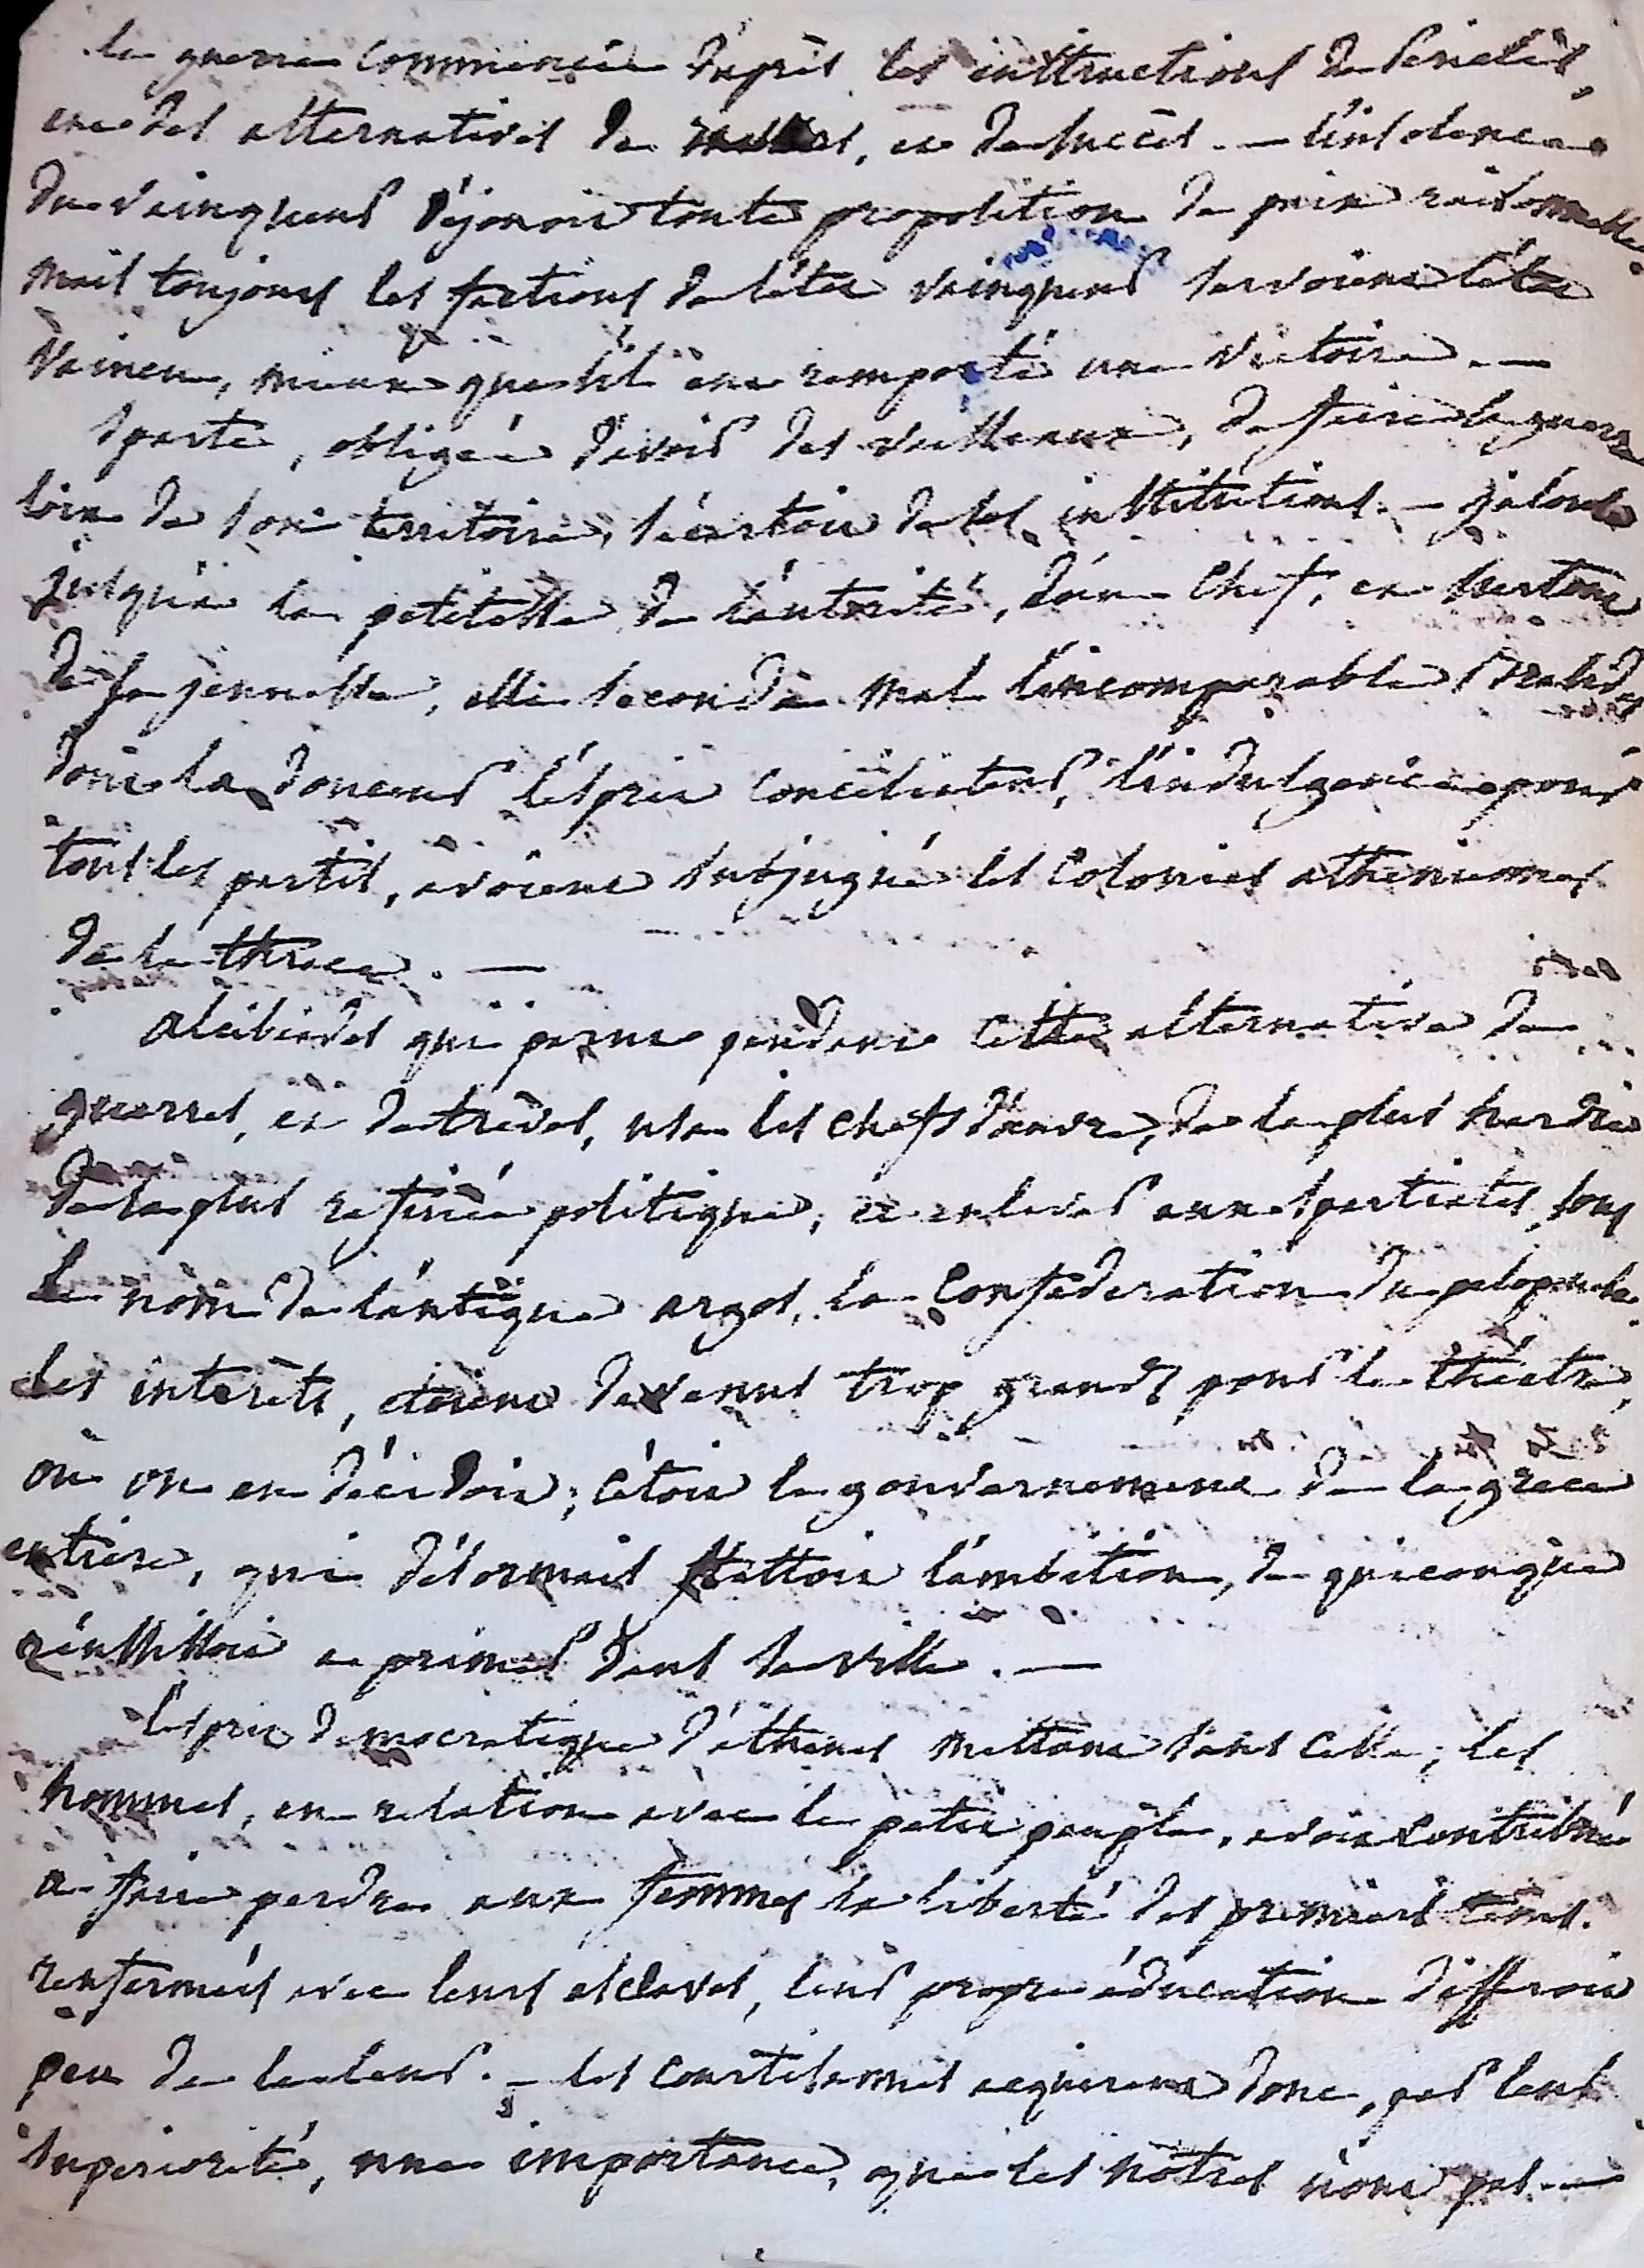 la guerre commencée d'après les instructions de Periclès,
eut des alternatives de et de succès. — l'insolence
du vainqueur éjonoit toute proposition de paix raisonnable.
mais toujours les factions de l'état vainqueur servoient l'état
vaincu, mieux que s'il eut remporté une victoire. —
Sparte, obligée d'avoir des vaisseaux, de faire la guerre
loin de son territoire, s'écartoit de ses institutions. — jalouse
jusqu'à la petitesse de l'autorité, d'un chef, et surtout
de sa jeunesse, elle seconda mal l'incomparable Brasidas
dont la douceur l'esprit conciliateur, l'indulgence pour
tous les partis, avoient subjugué les colonies atheniennes
de la thrace. —
alcibiades qui parut pendant cette alternative de
guerres, et de trèves, usa les chefs d'œuvre, de la plus hardie
de la plus rafinée politique, à enlever aux spartiates, sous
le nom de l'antique argos, la confédération du peloponese.
les interêts, étoient devenus trop grands pour le théatre,
où on en décidoit; c'étoit le gouvernement de la grece
entiere, qui désormais flattoit l'ambition, de quiconque
réussissoit a primer dans sa ville. —
l'esprit democratique d'athenes mettant sans cesse; les
hommes, en relation avec le petit peuple, avoit contribué
a faire perdre aux femmes la liberté des premiers tems.
renfermées avec leurs esclaves, leur propre éducation differoit
peu de la leur. — les courtisannes acquirent donc, par leur
superiorité, une importance, que les nôtres n'ont pas. —